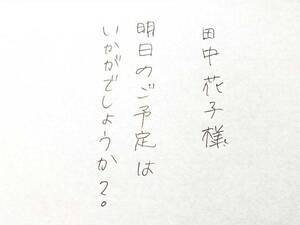 田中花子様
明日のご予定は
いかがでしょうか？。